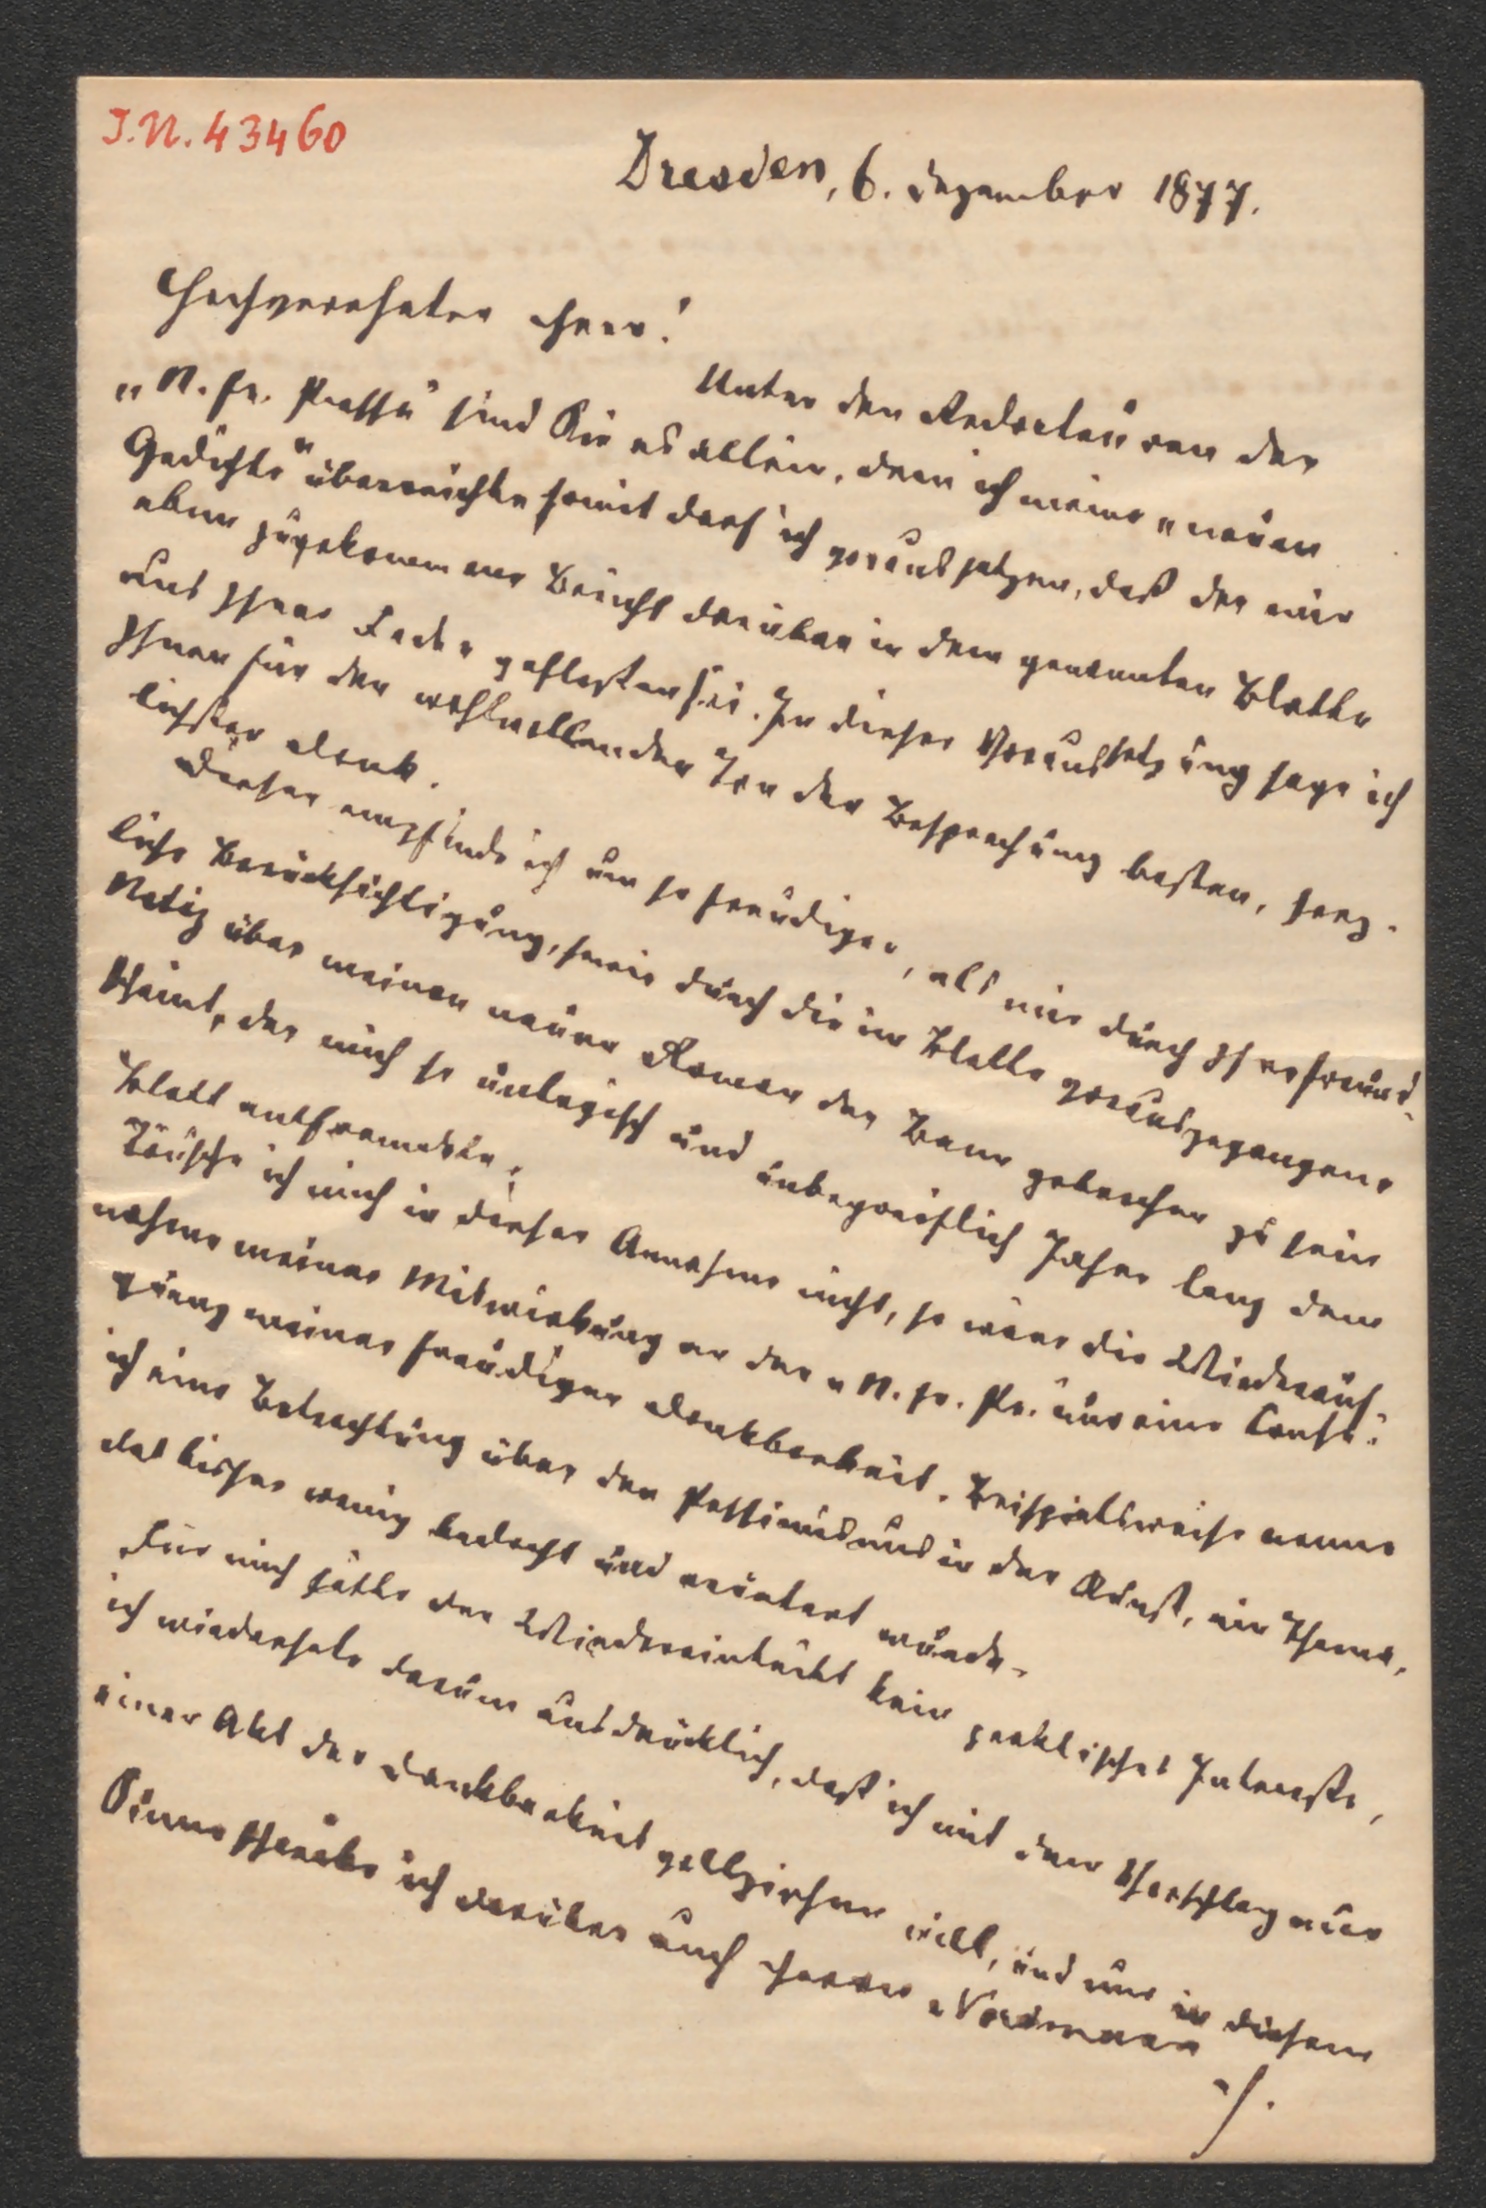 J.N. 43460
Dresden, 6. Dezember 1877.
Hochverehrter Herr!
Unter den Redacteuren der
„N. fr. Presse" sind Sie es allein, dem ich meine „neuen
Gedichte" überreichte somit darf ich voraussetzen, daß der mir
eben zugekommene Bericht darüber in dem genannten Blatte
aus Ihrer Feder geflossen sei. In dieser Voraussetzung sage ich
Ihnen für den wohlwollenden Ton der Besprechung besten, herz-
lichsten Dank.
Diesen empfinde ich um so freudiger, als mir durch Ihre freund-
liche Berücksichtigung, sowie durch die im Blatte vorausgegangene
Notiz über meinen neuen Roman der Bann gebrochen zu sein
scheint, der mich so unlogisch und unbegreiflich Jahre lang dem
Blatt entfremdete.
Täusche ich mich in dieser Annahme nicht, so wäre die Wiederauf-
nahme meiner Mitwirkung an der „N. fr. Pr. nur eine Conse-
quenz meiner freudigen Dankbarkeit. Beispielsweise nenne
ich eine Betrachtung über den Pessimismus in der Kunst, ein Thema,
das bisher wenig bedacht und erörtert wurde.
Für mich hätte der Wiedereintritt kein praktisches Interesse,
ich wiederhole darum ausdrücklich, daß ich mit dem Vorschlag nur
einen Akt der Dankbarkeit vollziehen will, und nur in diesem
Sinne schreibe ich darüber auch Herrn Nordmann